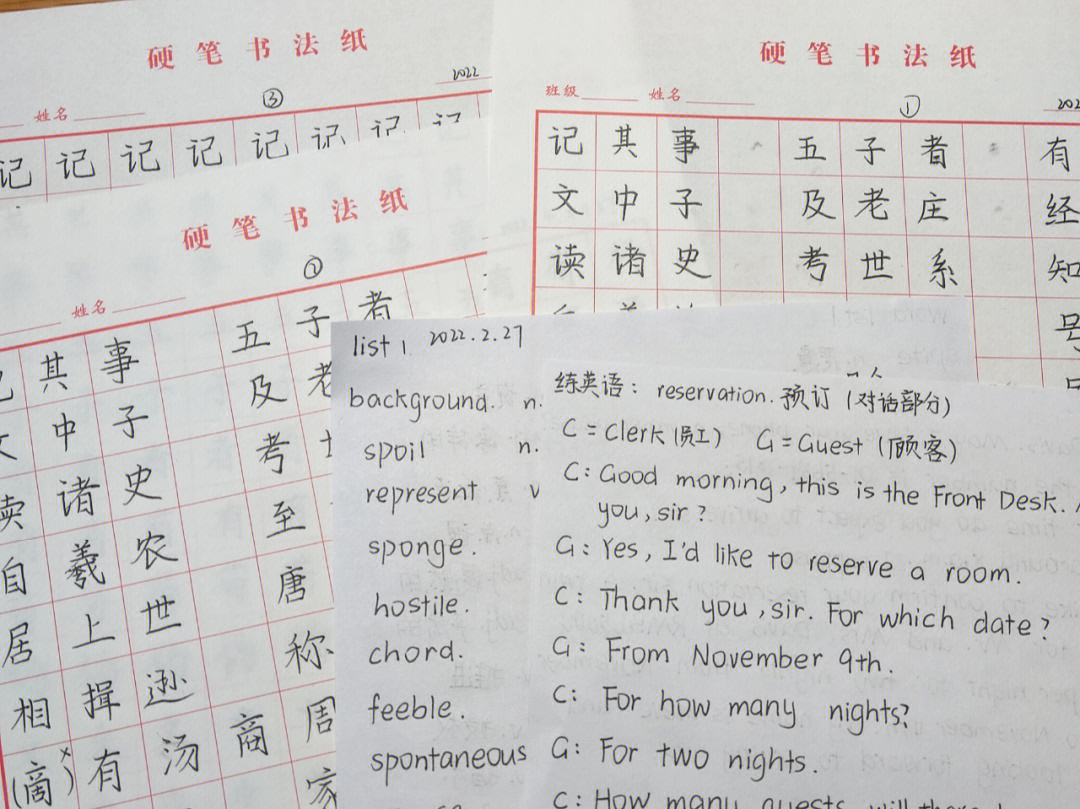 硬笔书法纸
2022
姓名
③
记 记 记 记 记 记 记 记
硬笔书法纸
班级 姓名
①
记其事 五子者 有
文中子 及老庄 经
读诸史 考世系 知
号
硬笔书法纸
②
姓名
其事 五子者
中子 及老
读诸史 考
自羲农 至
居上世 唐
相揖逊 称
(啇) 有汤商 周
家
list 1. 2022.2.27
background. n.
spoil n.
represent v
sponge.
hostile.
chord.
feeble.
spontaneous
练英语: reservation. 预订 (对话部分)
C = Clerk (员工) G = Guest (顾客)
C: Good morning, this is the Front Desk.
you, sir?
G: Yes, I'd like to reserve a room.
C: Thank you, sir. For which date?
G: From November 9th.
C: For how many nights?
G: For two nights.
C: How many guests will there